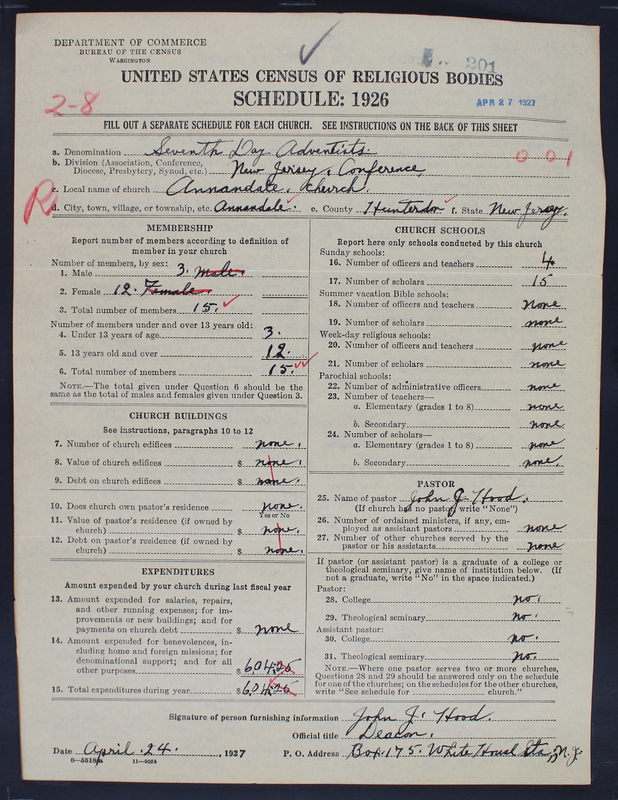 DEPARTMENT OF COMMERCE
BUREAU OF THE CENSUS
WASHINGTON
201
UNITED STATES CENSUS OF RELIGIOUS BODIES
SCHEDULE: 1926
APR 27 1927
2-8
FILL OUT A SEPARATE SCHEDULE FOR EACH CHURCH. SEE INSTRUCTIONS ON THE BACK OF THIS SHEET
a. Denomination Seventh Day Adventists.
b. Division (Association, Conference, Diocese, Presbytery, Synod, etc.) New Jersey, Conference
001
c. Local name of church Annandale. Church.
R
d. City, town, village, or township, etc. Annandale. e. County Hunterdon f. State New Jersey.
MEMBERSHIP
Report number of members according to definition of
member in your church
Number of members, by sex:
1. Male 3. Male.
2. Female 12. Female.
3. Total number of members 15.
Number of members under and over 13 years old:
4. Under 13 years of age 3.
5. 13 years old and over 12.
6. Total number of members 15.
NOTE.—The total given under Question 6 should be
same as the total of males and females given under Question 3.
CHURCH BUILDINGS
See instructions, paragraphs 10 to 12
7. Number of church edifices none.
8. Value of church edifices $ none.
9. Debt on church edifices $ none.
10. Does church own pastor's residence none.
Yes or No
11. Value of pastor's residence (if owned by
church) $ none.
12. Debt on pastor's residence (if owned by
church) $ none.
EXPENDITURES
Amount expended by your church during last fiscal year
13. Amount expended for salaries, repairs,
and other running expenses; for im-
provements or new buildings; and for
payments on church debt $ none
14. Amount expended for benevolences, in-
cluding home and foreign missions; for
denominational support; and for all
other purposes $ 604.25
15. Total expenditures during year $ 604.25
CHURCH SCHOOLS
Report here only schools conducted by this church
Sunday schools:
16. Number of officers and teachers 4
17. Number of scholars 15
Summer vacation Bible schools:
18. Number of officers and teachers none
19. Number of scholars none
Week-day religious schools:
20. Number of officers and teachers none
21. Number of scholars none
Parochial schools:
22. Number of administrative officers none
23. Number of teachers—
a. Elementary (grades 1 to 8) none
b. Secondary none
24. Number of scholars—
a. Elementary (grades 1 to 8) none
b. Secondary none.
PASTOR
25. Name of pastor John J. Hood.
(If church has no pastor write "None")
26. Number of ordained ministers, if any, em-
ployed as assistant pastors none
27. Number of other churches served by the
pastor or his assistants none
If pastor (or assistant pastor) is a graduate of a college or
theological seminary, give name of institution below. (If
not a graduate, write "No" in the space indicated.)
Pastor:
28. College no.
29. Theological seminary no.
Assistant pastor:
30. College no.
31. Theological seminary no.
NOTE.—Where one pastor serves two or more churches,
Questions 28 and 29 should be answered only on the schedule
for one of the churches; on the schedules for the other churches,
write "See schedule for church."
Signature of person furnishing information John J. Hood.
Official title Deacon.
Date April 24., 1927 P. O. Address Box 175. White House Sta, N. J.
8-5518a 11-9564